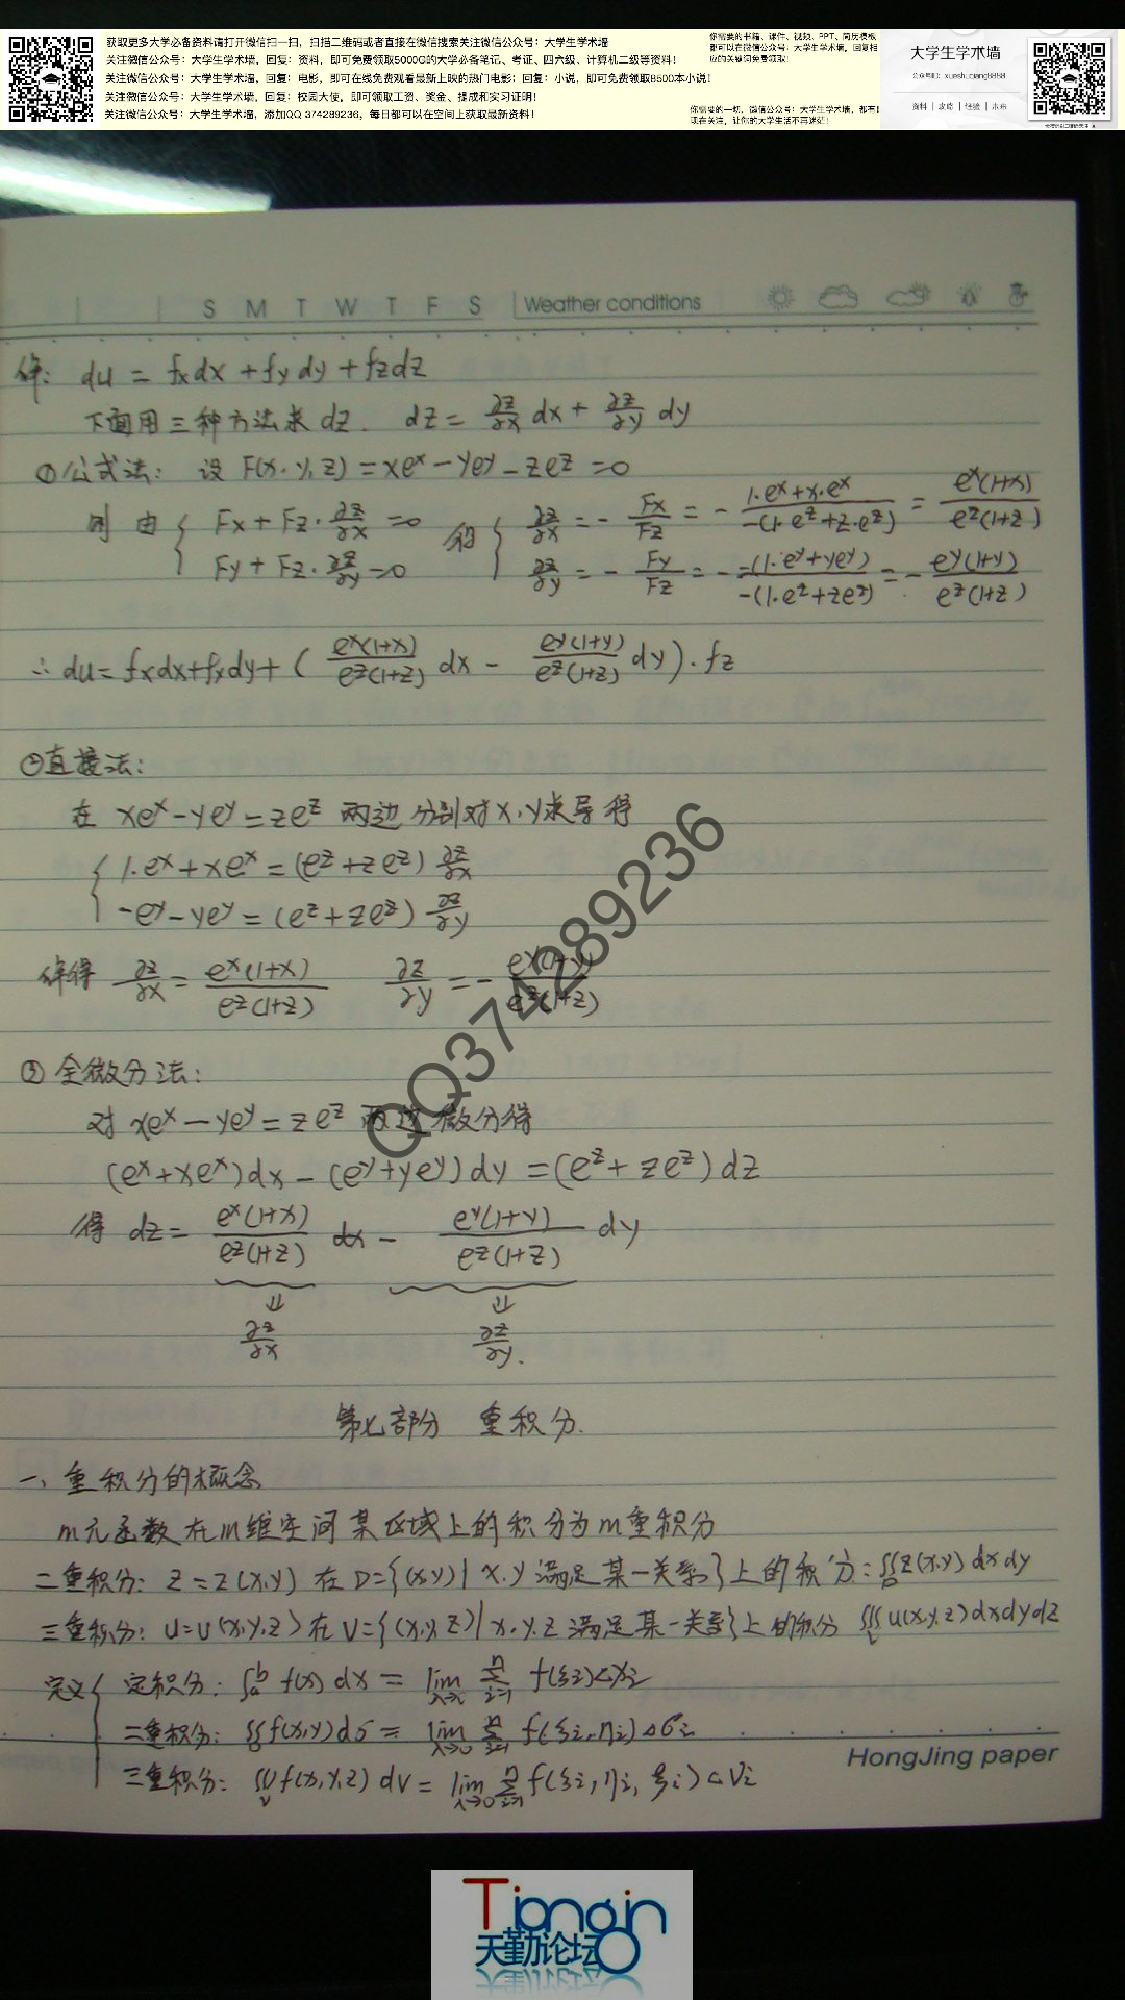 获取更多大学必备资料请打开微信扫一扫，扫描二维码或者直接在微信搜索关注微信公众号：大学生学术墙
关注微信公众号：大学生学术墙，回复：资料，即可免费领取5000G的大学必备笔记、考证、四六级、计算机二级等资料！
关注微信公众号：大学生学术墙，回复：电影，即可在线免费观看最新上映的热门电影；回复：小说，即可免费领取8500本小说！
关注微信公众号：大学生学术墙，回复：校园大使，即可领取工资、奖金、提成和实习证明！
关注微信公众号：大学生学术墙，添加QQ 374289236，每日都可以在空间上获取最新资料！
你需要的书籍、课件、视频、PPT、简历模板
都可以在微信公众号：大学生学术墙，回复相
应的关键词免费领取！
你需要的一切，微信公众号：大学生学术墙，都有！
现在关注，让你的大学生活不再迷茫！
大学生学术墙
资料 | 攻略 | 经验 | 未来
S M T W T F S Weather conditions
解: du = fxdx + fydy + fzdz
下面用三种方法求 dz. dz = ∂z/∂x dx + ∂z/∂y dy
① 公式法: 设 F(x,y,z) = xe^x − ye^y − ze^z = 0
则 由 { Fx + Fz·∂z/∂x = 0 得 { ∂z/∂x = − Fx/Fz = − (1·e^x + x·e^x)/(−(1·e^z + z·e^z)) = e^x(1+x)/e^z(1+z)
Fy + Fz·∂z/∂y = 0 ∂z/∂y = − Fy/Fz = − −(1·e^y + ye^y)/−(1·e^z + ze^z) = − e^y(1+y)/e^z(1+z)
∴ du = fxdx + fxdy + ( e^x(1+x)/e^z(1+z) dx − e^y(1+y)/e^z(1+z) dy )·fz
② 直接法:
在 xe^x − ye^y = ze^z 两边分别对x,y求导得
{ 1·e^x + xe^x = (e^z + ze^z) ∂z/∂x
−e^y − ye^y = (e^z + ze^z) ∂z/∂y
解得 ∂z/∂x = e^x(1+x)/e^z(1+z) ∂z/∂y = − e^y(1+y)/e^z(1+z)
③ 全微分法:
对 xe^x − ye^y = ze^z 两边微分得
(e^x + xe^x)dx − (e^y + ye^y)dy = (e^z + ze^z)dz
得 dz = e^x(1+x)/e^z(1+z) dx − e^y(1+y)/e^z(1+z) dy
⇓ ⇓
∂z/∂x ∂z/∂y.
第七部分 重积分.
一、重积分的概念
m元函数在m维空间某区域上的积分为m重积分
二重积分: z = z(x,y) 在 D = {(x,y) | x,y 满足某一关系} 上的积分: ∬_D z(x,y) dxdy
三重积分: u = u(x,y,z) 在 V = {(x,y,z) | x,y,z 满足某一关系} 上的积分 ∭_V u(x,y,z) dxdydz
定义 { 定积分: ∫_a^b f(x) dx = lim_{λ→0} Σ_{i=1}^n f(ξi)△xi
二重积分: ∬_D f(x,y) dσ = lim_{λ→0} Σ_{i=1}^n f(ξi,ηi)△σi
三重积分: ∭_V f(x,y,z) dV = lim_{λ→0} Σ_{i=1}^n f(ξi,ηi,ζi)△Vi
HongJing paper
QQ374289236
Tiangin
天勤论坛